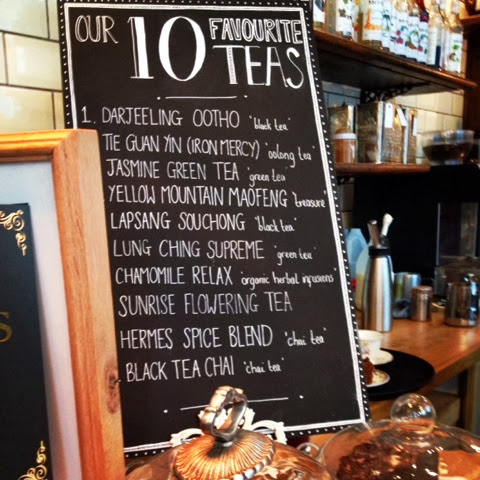 OUR 10 FAVOURITE TEAS
1. DARJEELING OOTHO "black tea"
TIE GUAN YIN (IRON MERCY) "oolong tea"
JASMINE GREEN TEA "green tea"
YELLOW MOUNTAIN MAOFENG "treasure"
LAPSANG SOUCHONG "black tea"
LUNG CHING SUPREME "green tea"
CHAMOMILE RELAX "organic herbal infusions"
SUNRISE FLOWERING TEA
HERMES SPICE BLEND "chai tea"
BLACK TEA CHAI "chai tea"
S